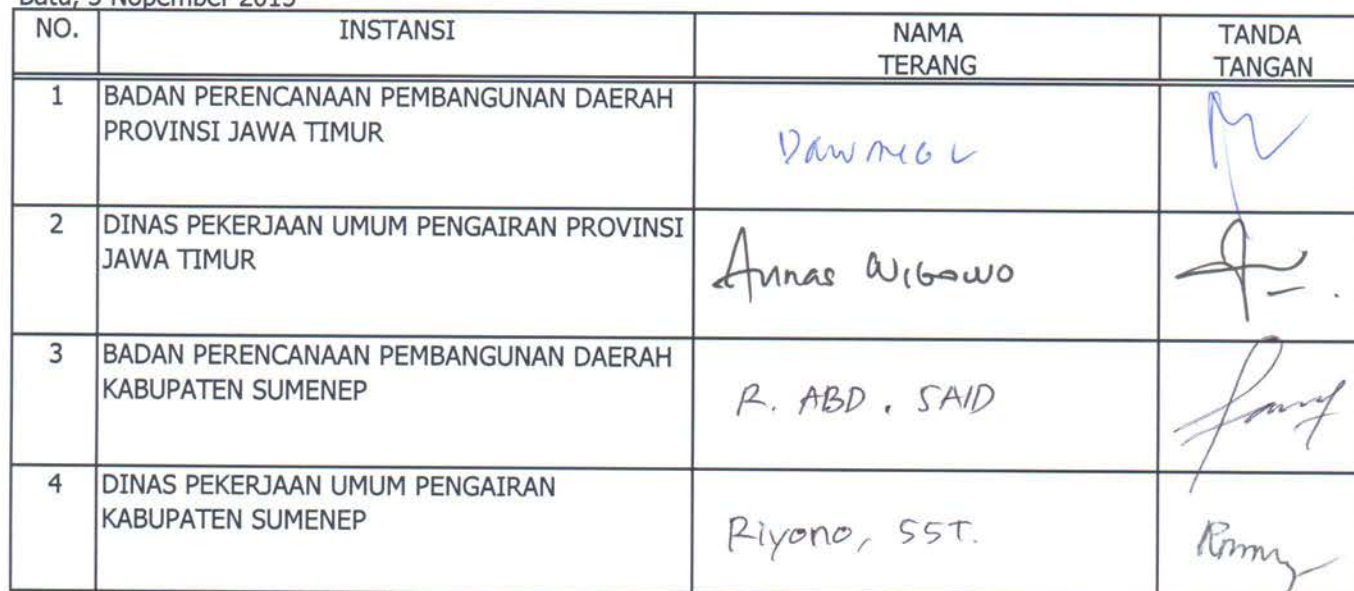 Batu, 5 Nopember 2015
NO. INSTANSI NAMA TERANG TANDA TANGAN
1 BADAN PERENCANAAN PEMBANGUNAN DAERAH
PROVINSI JAWA TIMUR
2 DINAS PEKERJAAN UMUM PENGAIRAN PROVINSI
JAWA TIMUR
Annas Wibowo
3 BADAN PERENCANAAN PEMBANGUNAN DAERAH
KABUPATEN SUMENEP
R. ABD. SAID
4 DINAS PEKERJAAN UMUM PENGAIRAN
KABUPATEN SUMENEP
Riyono, SST.